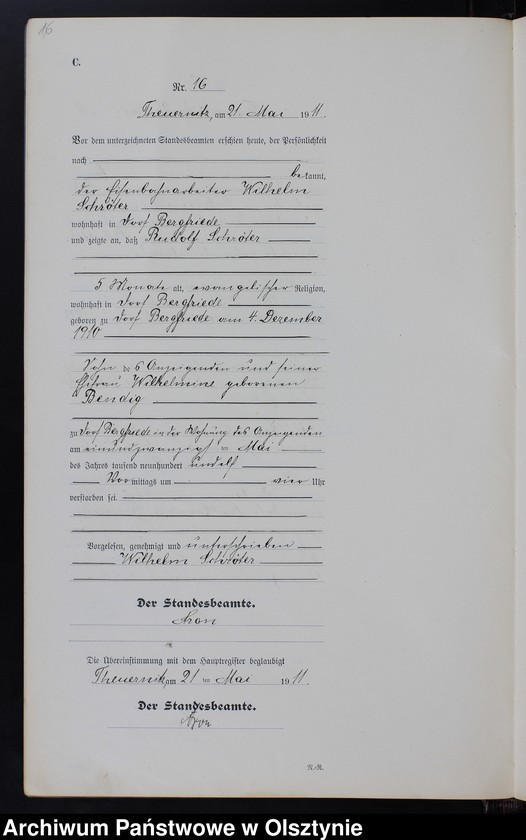 16
C.
Nr. 16
Theuernitz, am 21. Mai 1911.
Vor dem unterzeichneten Standesbeamten erschien heute, der Persönlichkeit
nach
bekannt,
der Eisenbahnarbeiter Wilhelm
Schröter
wohnhaft in Dorf Bergfriede
und zeigte an, daß Rudolf Schröter
5 Monate alt, evangelischer Religion,
wohnhaft in Dorf Bergfriede
geboren zu Dorf Bergfriede am 4. Dezember
1910
Sohn des Anzeigenden und seiner
Ehefrau Wilhelmine geborenen
Bendig
zu Dorf Bergfriede in der Wohnung des Anzeigenden
am einundzwanzigsten Mai
des Jahres tausend neunhundert undelf
Vormittags um vier Uhr
verstorben sei.
Vorgelesen, genehmigt und unterschrieben
Wilhelm Schröter
Der Standesbeamte.
Die Übereinstimmung mit dem Hauptregister beglaubigt
Theuernitz, am 21 ten Mai 1911.
Der Standesbeamte.
Archiwum Państwowe w Olsztynie